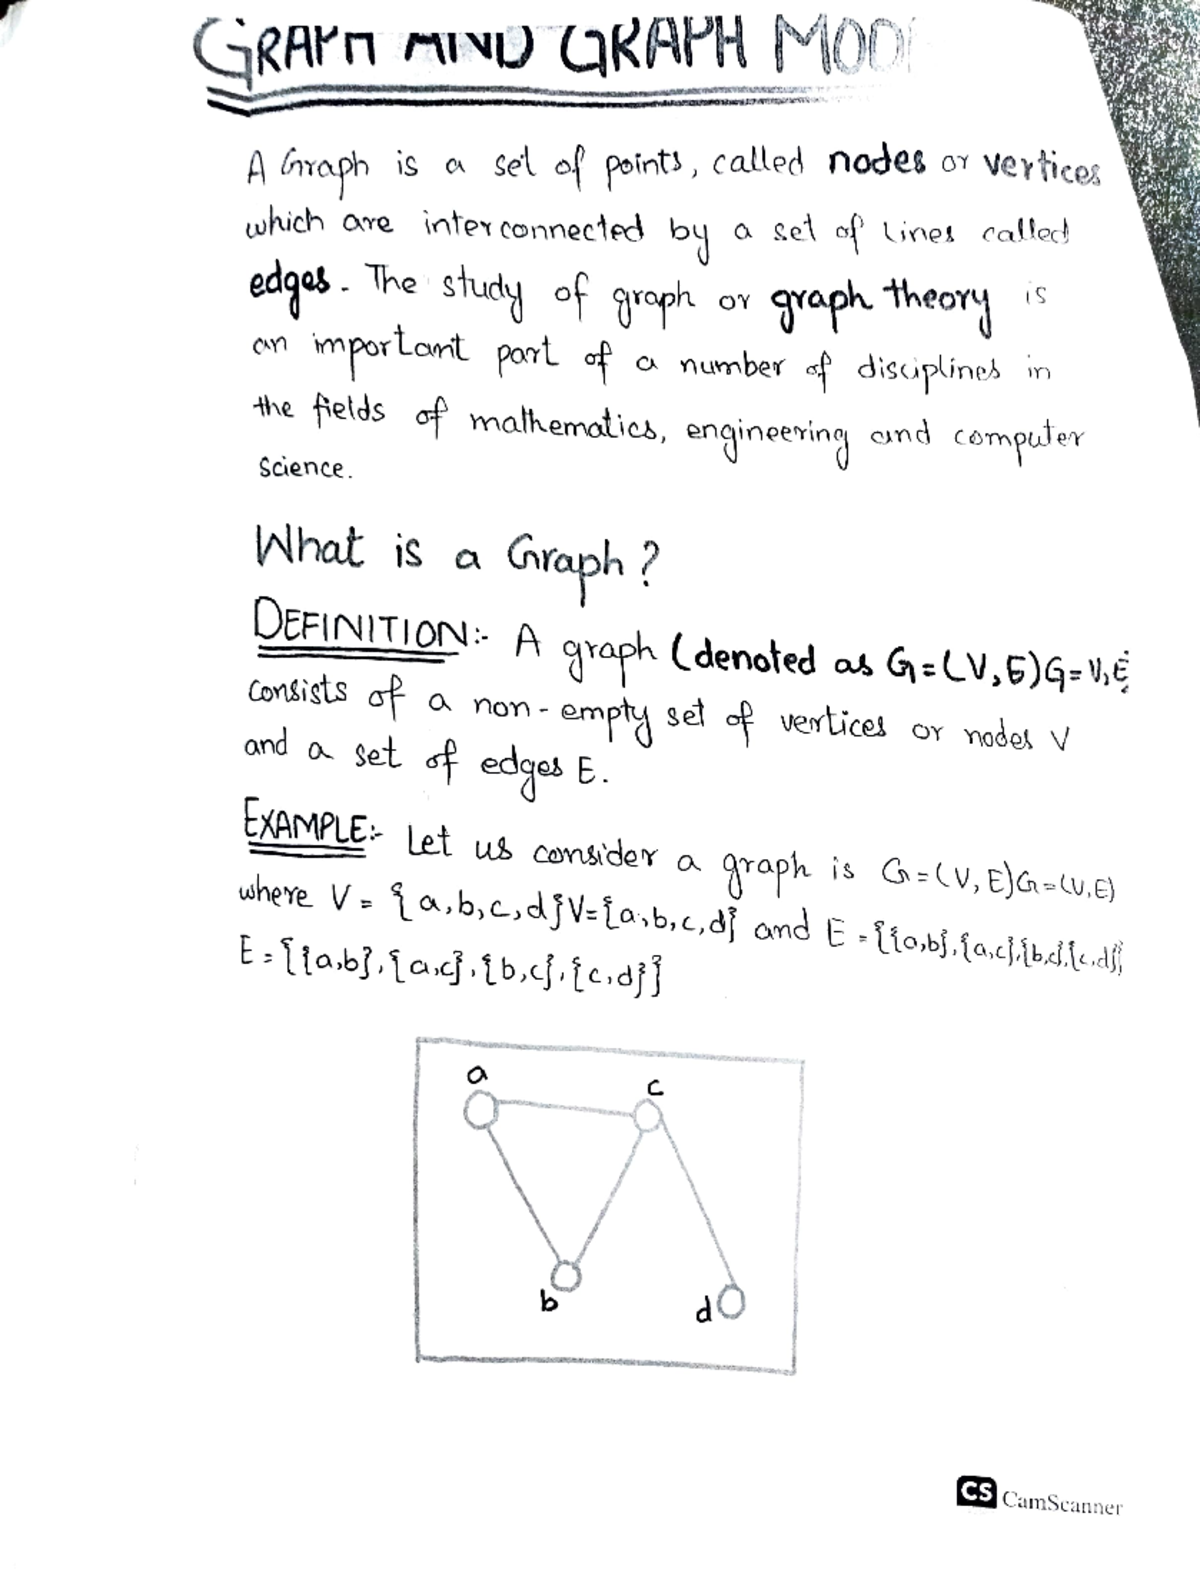 GRAPH AND GRAPH MOD
A Graph is a set of points, called nodes or vertices
which are interconnected by a set of lines called
edges. The study of graph or graph theory is
an important part of a number of disciplines in
the fields of mathematics, engineering and computer
science.
What is a Graph?
DEFINITION:- A graph (denoted as G=(V,E)G=V,E
consists of a non-empty set of vertices or nodes V
and a set of edges E.
EXAMPLE:- Let us consider a graph is G=(V,E)G=(V,E)
where V = {a,b,c,d}V={a,b,c,d} and E = {{a,b},{a,c},{b,c},{c,d}}
E = {{a,b},{a,c},{b,c},{c,d}}
a
c
b
d
CS CamScanner